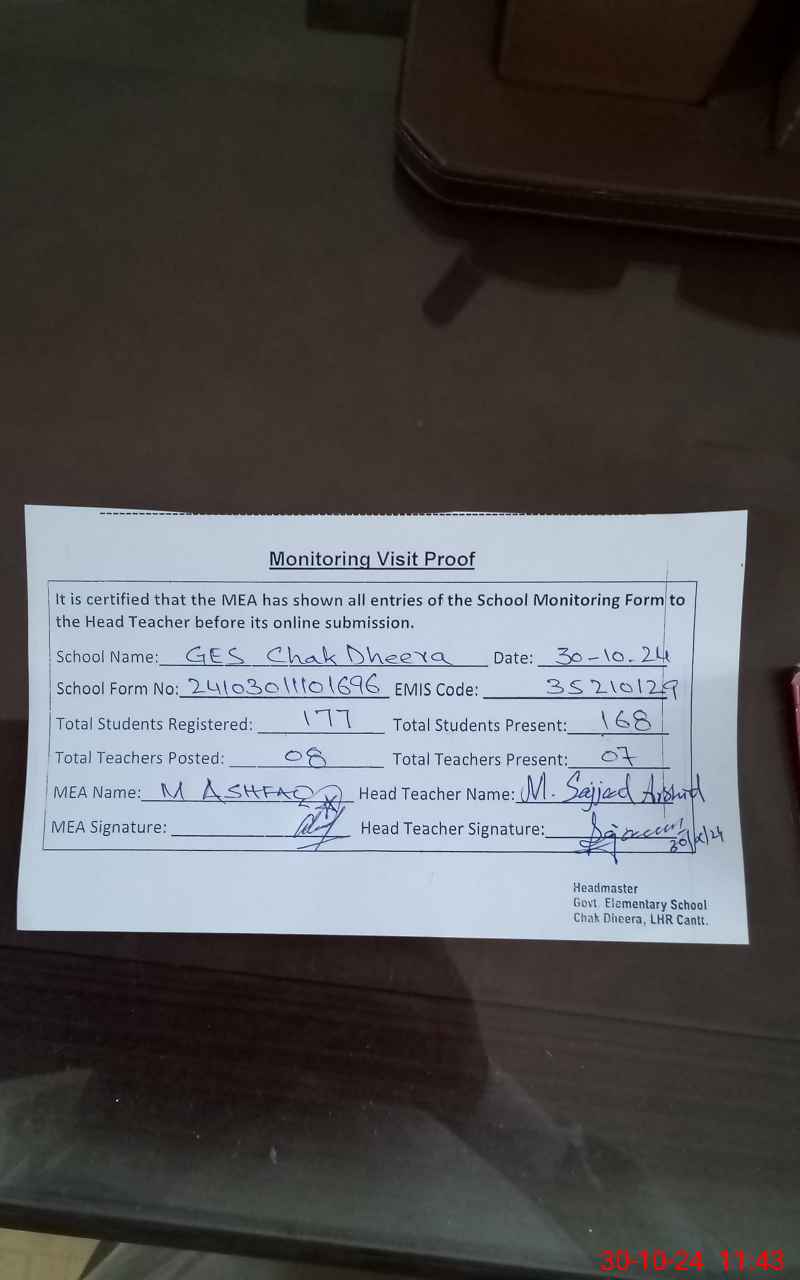 Monitoring Visit Proof
It is certified that the MEA has shown all entries of the School Monitoring Form to
the Head Teacher before its online submission.
School Name: GES Chak Dheera Date: 30-10-24
School Form No: 24103011101696 EMIS Code: 35210129
Total Students Registered: 177 Total Students Present: 168
Total Teachers Posted: 08 Total Teachers Present: 07
MEA Name: M ASHFAQ Head Teacher Name: M. Sajjad Arshid
MEA Signature: Head Teacher Signature:
Headmaster
Govt. Elementary School
Chak Dheera, LHR Cantt.
30-10-24 11:43